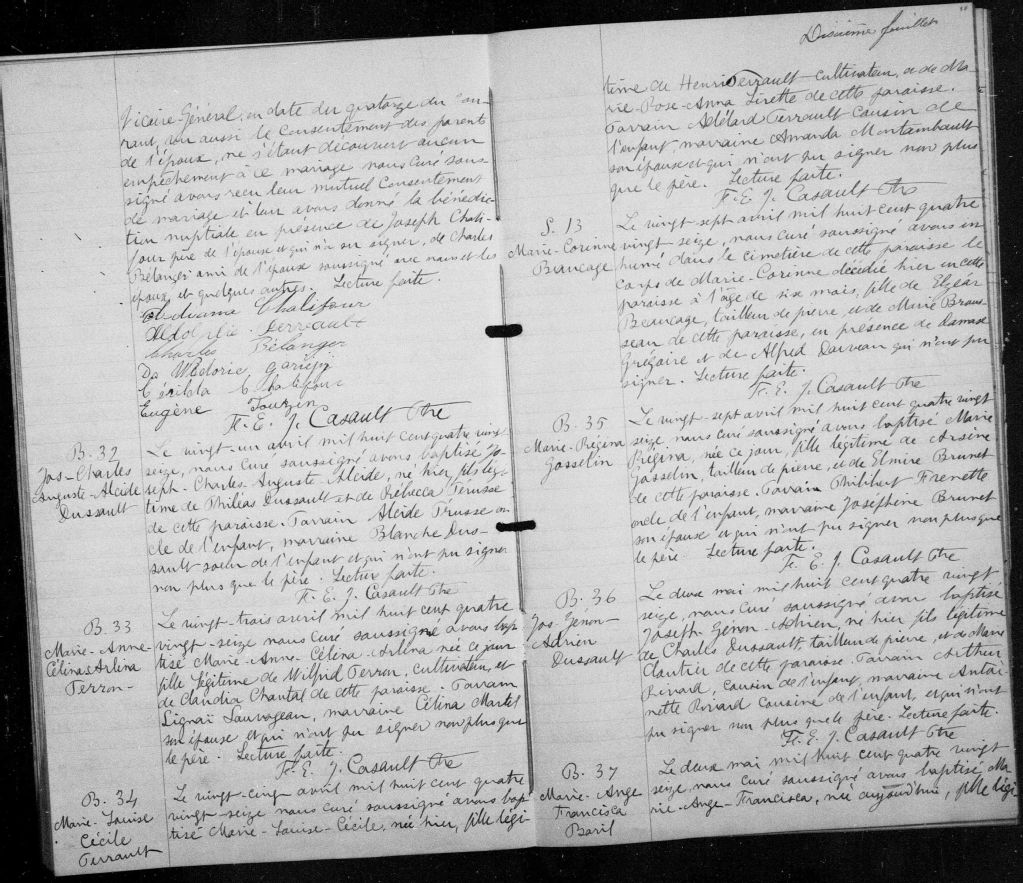 Vicaire-Général, en date du quatorze du cou-
rant, vu aussi le consentement des parents
de l'époux, ne s'étant découvert aucun
empêchement à ce mariage nous curé sous
signé avons reçu leur mutuel consentement
de mariage et leur avons donné la bénédic-
tion nuptiale en présence de Joseph Chali-
four père de l'épouse et qui n'a su signer, de Charles
Bélanger ami de l'époux soussigné avec nous et les
époux, et quelques autres. Lecture faite.
Chalifour
Perrault
Charles Bélanger
Chalifour
Eugène
F. E. J. Casault Ptre
B. 32
Jos-Charles
Auguste-Alcide
Dussault
Le vingt-un avril mil huit cent quatre vingt
seize, nous curé soussigné avons baptisé Jo-
seph-Charles-Auguste-Alcide, né hier, fils légi
time de Philéas Dussault et de Rébecca Pérusse
de cette paroisse. Parrain Alcide Pérusse on
cle de l'enfant, marraine Blanche Dus-
sault soeur de l'enfant et qui n'ont pu signer
non plus que le père. Lecture faite.
F. E. J. Casault Ptre
B. 33
Marie-Anne-
Célina Arlina
Perron-
Le vingt-trois avril mil huit cent quatre
vingt-seize nous curé soussigné avons bap
tisé Marie-Anne-Célina-Arlina née ce jour
fille légitime de Wilfrid Perron, cultivateur, et
de Claudia Chantal de cette paroisse. Parrain
Sauvageau, marraine Célina Martel
son épouse et qui n'ont pu signer non plus que
le père. Lecture faite.
F. E. J. Casault Ptre
B. 34
Marie-Louise
Cécile
Perrault
Le vingt-cinq avril mil huit cent quatre
vingt-seize nous curé soussigné avons bap
tisé Marie-Louise-Cécile, née hier, fille légi-
Dixième feuillet
time de Henri Perrault cultivateur, et de Ma-
rie-Rose-Anna Lirette de cette paroisse.
Parrain Adélard Perrault cousin de
l'enfant, marraine Amanda Montambault
son épouse et qui n'ont pu signer non plus
que le père. Lecture faite.
F. E. J. Casault Ptre
S. 13
Marie-Corinne
Beaucage
Le vingt-sept avril mil huit cent quatre
vingt-seize, nous curé soussigné avons in
humé dans le cimetière de cette paroisse le
corps de Marie-Corinne décédée hier en cette
paroisse à l'âge de six mois, fille de Elzéar
Beaucage, tailleur de pierre, et de Marie Brous
seau de cette paroisse, en présence de Damase
Grégoire et de Alfred Darveau qui n'ont pu
signer. Lecture faite.
F. E. J. Casault Ptre
B. 35
Marie-Régina
Gosselin
Le vingt-sept avril mil huit cent quatre vingt
seize, nous curé soussigné avons baptisé Marie
Régina, née ce jour, fille légitime de Arsène
Gosselin, tailleur de pierre, et de Elmire Brunet
de cette paroisse. Parrain Philibert Frenette
oncle de l'enfant, marraine Joséphine Brunet
son épouse et qui n'ont pu signer non plus que
le père. Lecture faite.
F. E. J. Casault Ptre
B. 36
Jos. Génon-
Adrien
Dussault
Le deux mai mil huit cent quatre vingt
seize, nous curé soussigné avons baptisé
Joseph-Génon-Adrien, né hier, fils légitime
de Charles Dussault, tailleur de pierre, et de Marie
Cloutier de cette paroisse. Parrain Arthur
Rivard, cousin de l'enfant, marraine Antoi
nette Rivard cousine de l'enfant, et qui n'ont
pu signer non plus que le père. Lecture faite.
F. E. J. Casault Ptre
B. 37
Marie-Ange
Francisca
Baril
Le deux mai mil huit cent quatre vingt-
seize, nous curé soussigné avons baptisé Ma
rie-Ange-Francisca, née aujourd'hui, fille légi